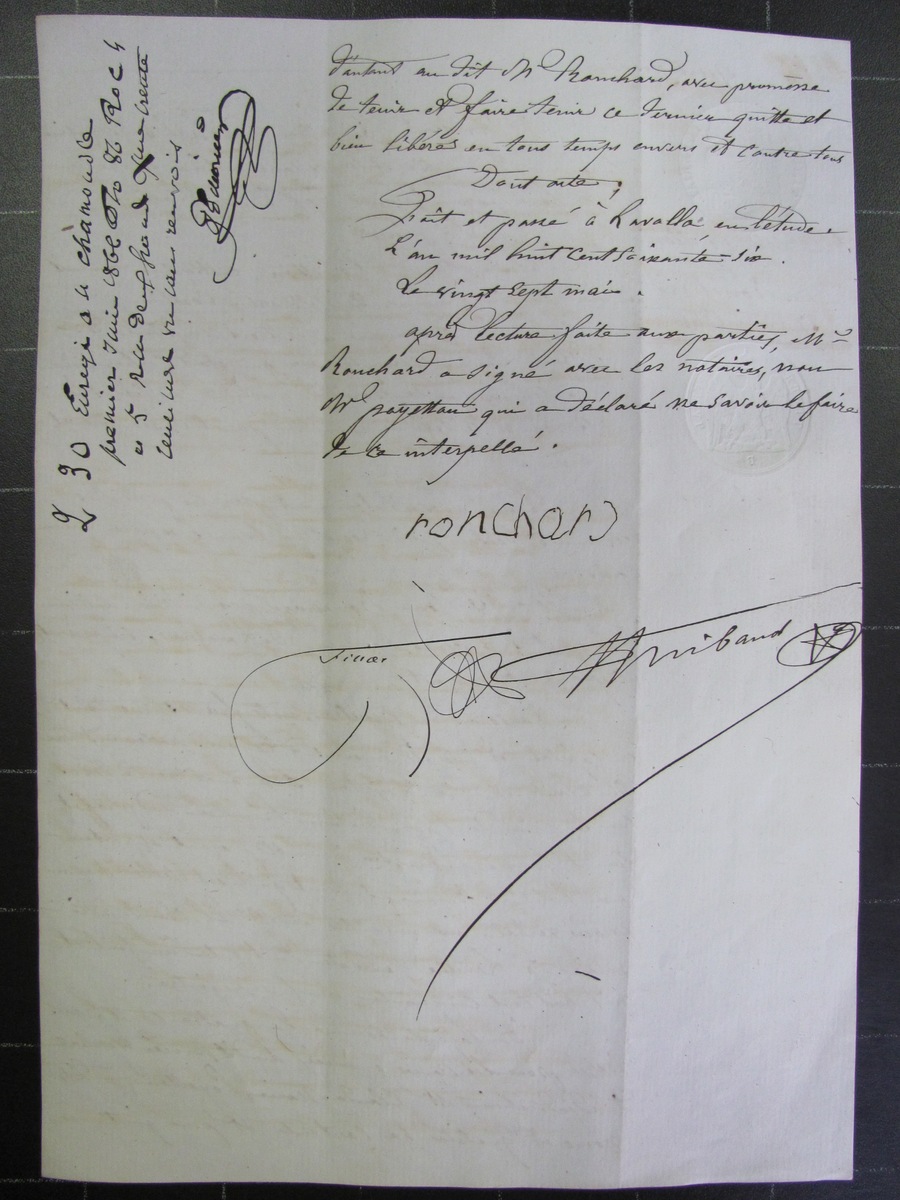 d'autant au dit Mr Ronchard, avec promesse
de tenir et faire tenir ce dernier quitte et
bien libéré en tous temps envers et contre tous
Dont acte,
Fait et passé à Lavalla en l'étude.
L'an mil huit cent soixante six.
Le vingt sept mai.
après lecture faite aux parties, Mr
Ronchard a signé avec les notaires, non
Mr payettau qui a déclaré ne savoir le faire
de ce interpellé.
ronchard
finas
Thibaud
2 30 Enregé à St chamond le
premier Juin 1866 fo 86 Ro C 4
et 5 reçu deux francs trente
centimes sans renvois